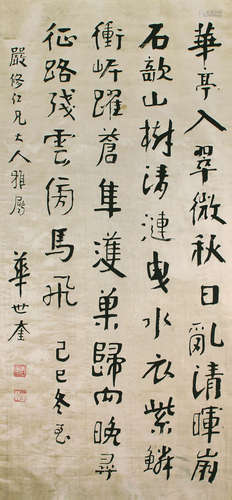 華亭入翠微秋日亂清暉崩
石欹山樹清漣曳水衣紫鱗
衝岸躍蒼隼護巢歸向晚尋
征路殘雲傍馬飛 己巳冬至
嚴修仁兄大人雅屬
華世奎